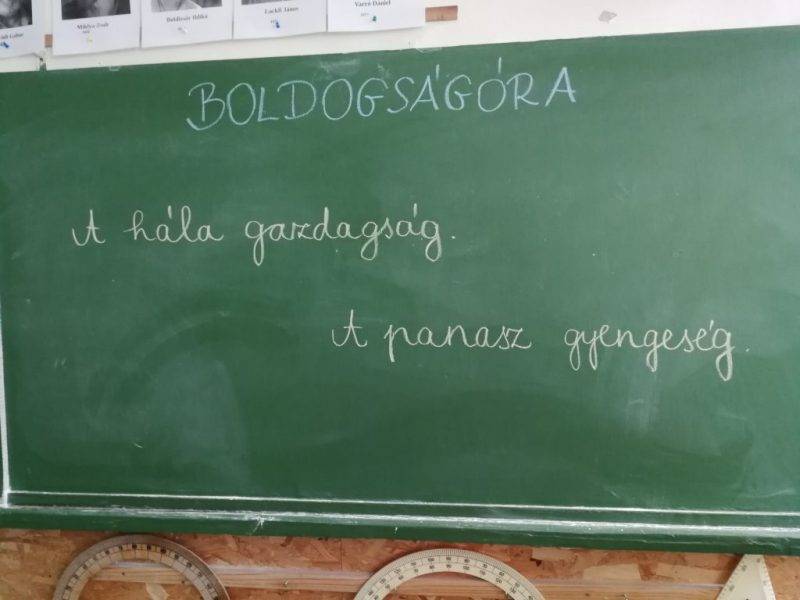 Miklya Zsolt
Boldizsár Ildikó
Lackfi János
Varró Dániel
BOLDOGSÁGÓRA
A hála gazdagság.
A panasz gyengeség.